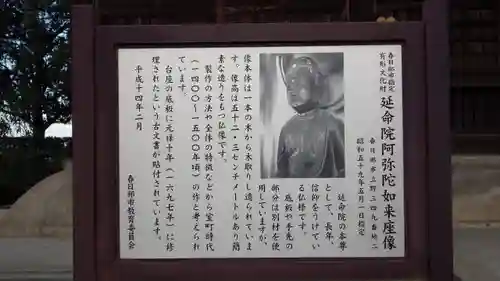 春日部市指定
有形文化財
延命院阿弥陀如来座像
春日部市上野三四九番地二
昭和五十九年五月一日指定
延命院の本尊
として、長年、
信仰をうけてい
る仏様です。
底板や手先の
部分は別材を使
用していますが、
像本体は一本の木から木取りし造られていま
す。像高は五十二・三センチメートルあり簡
素な造りをもつ仏像です。
製作の方法や全体の特徴などから室町時代
(一四〇〇〜一五〇〇年頃)の作と考えられ
ています。
台座の底板に元禄十年(一六九七年)に修
理されたという古文書が貼付されています。
平成十四年二月
春日部市教育委員会